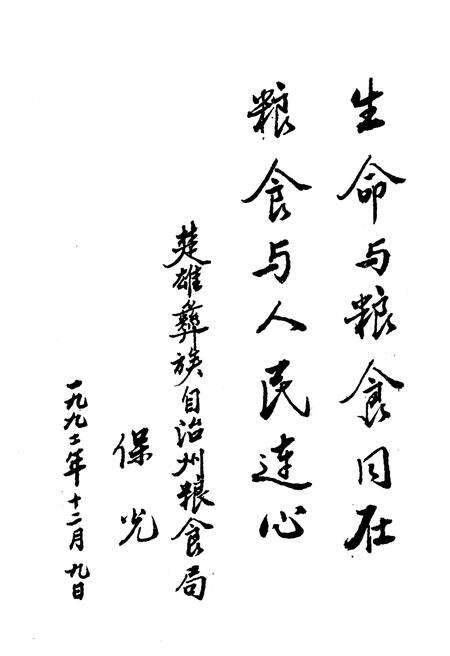 生命与粮食同在
粮食与人民连心
楚雄彝族自治州粮食局
保光
一九九二年十二月九日